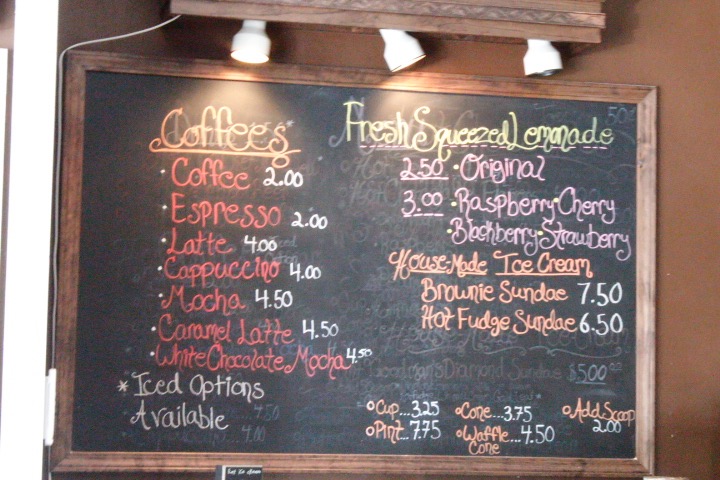 Coffees
• Coffee 2.00
• Espresso 2.00
• Latte 4.00
• Cappuccino 4.00
• Mocha 4.50
• Caramel Latte 4.50
• White Chocolate Mocha 4.50
* Iced Options
Available
Fresh Squeezed Lemonade
2.50 • Original
3.00 • Raspberry • Cherry
• Blackberry • Strawberry
House Made Ice Cream
Brownie Sundae 7.50
Hot Fudge Sundae 6.50
Goodman's Diamond Sundae $500
Cup...3.25 Cone...3.75 Add Scoop
2.00
Pint...7.75 Waffle...4.50
Cone